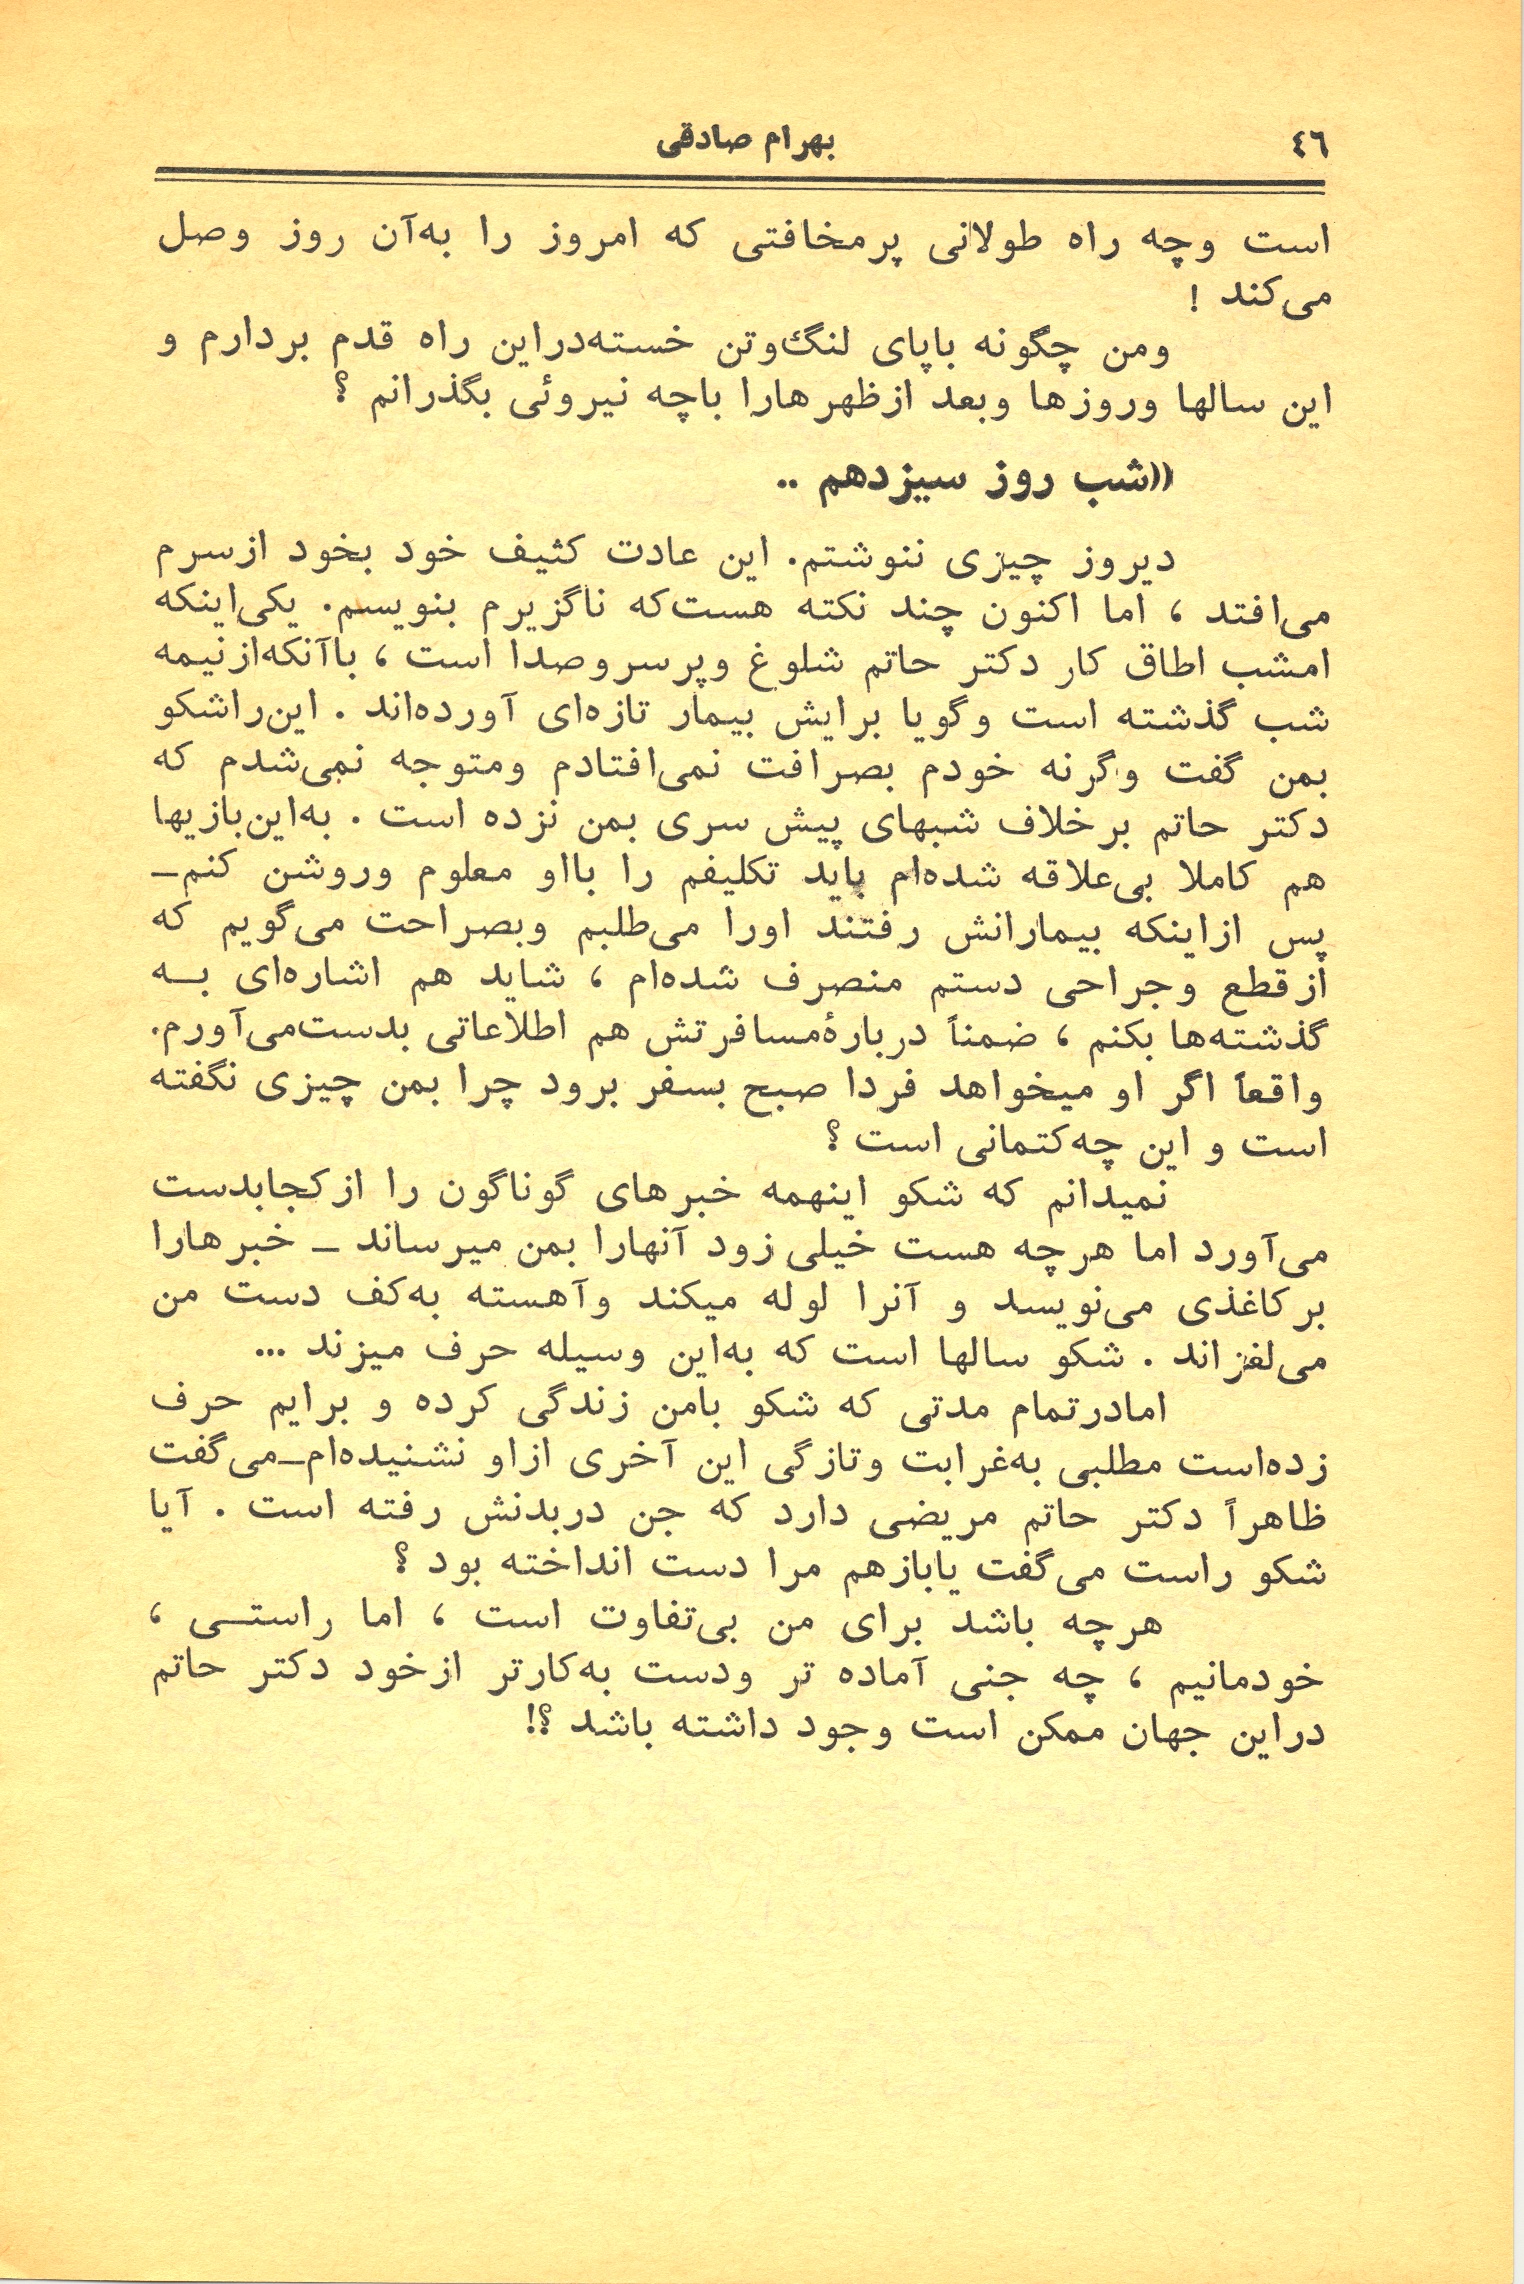 ٤٦
بهرام صادقی
است وچه راه طولانی پرمخافتی که امروز را به‌آن روز وصل
می‌کند !
ومن چگونه باپای لنگ‌وتن خسته‌دراین راه قدم بردارم و
این سالها وروزها وبعد ازظهرهارا باچه نیروئی بگذرانم ؟
«شب روز سیزدهم ..
دیروز چیزی ننوشتم. این عادت کثیف خود بخود ازسرم
می‌افتد ، اما اکنون چند نکته هست‌که ناگزیرم بنویسم. یکی‌اینکه
امشب اطاق کار دکتر حاتم شلوغ وپرسروصدا است ، باآنکه‌ازنیمه
شب گذشته است وگویا برایش بیمار تازه‌ای آورده‌اند . این‌راشکو
بمن گفت وگرنه خودم بصرافت نمی‌افتادم ومتوجه نمی‌شدم که
دکتر حاتم برخلاف شبهای پیش سری بمن نزده است . به‌این‌بازیها
هم کاملا بی‌علاقه شده‌ام باید تکلیفم را بااو معلوم وروشن کنم_
پس ازاینکه بیمارانش رفتند اورا می‌طلبم وبصراحت می‌گویم که
ازقطع وجراحی دستم منصرف شده‌ام ، شاید هم اشاره‌ای بــه
گذشته‌ها بکنم ، ضمناً دربارهٔ‌مسافرتش هم اطلاعاتی بدست‌می‌آورم.
واقعاً اگر او میخواهد فردا صبح بسفر برود چرا بمن چیزی نگفته
است و این چه‌کتمانی است ؟
نمیدانم که شکو اینهمه خبرهای گوناگون را ازکجابدست
می‌آورد اما هرچه هست خیلی زود آنهارا بمن میرساند _ خبرهارا
برکاغذی می‌نویسد و آنرا لوله میکند وآهسته به‌کف دست من
می‌لغزاند . شکو سالها است که به‌این وسیله حرف میزند ...
امادرتمام مدتی که شکو بامن زندگی کرده و برایم حرف
زده‌است مطلبی به‌غرابت وتازگی این آخری ازاو نشنیده‌ام_می‌گفت
ظاهراً دکتر حاتم مریضی دارد که جن دربدنش رفته است . آیا
شکو راست می‌گفت یابازهم مرا دست انداخته بود ؟
هرچه باشد برای من بی‌تفاوت است ، اما راستــی ،
خودمانیم ، چه جنی آماده تر ودست به‌کارتر ازخود دکتر حاتم
دراین جهان ممکن است وجود داشته باشد ؟!